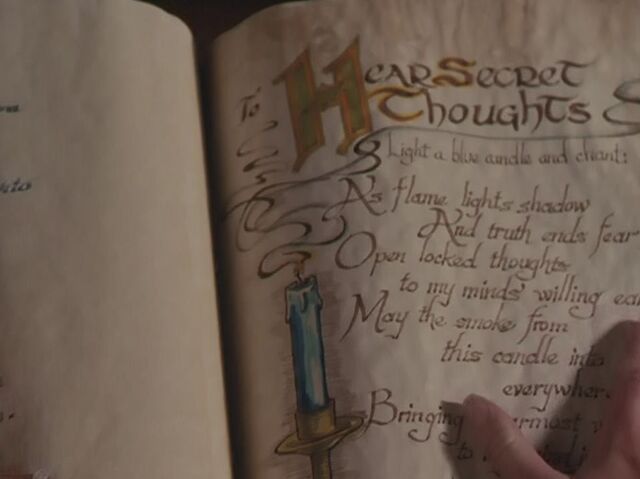 To Hear Secret
Thoughts
Light a blue candle and chant:
As flame lights shadow
And truth ends fear
Open locked thoughts
to my minds' willing
May the smoke from
this candle into
everywhere
Bringing
to